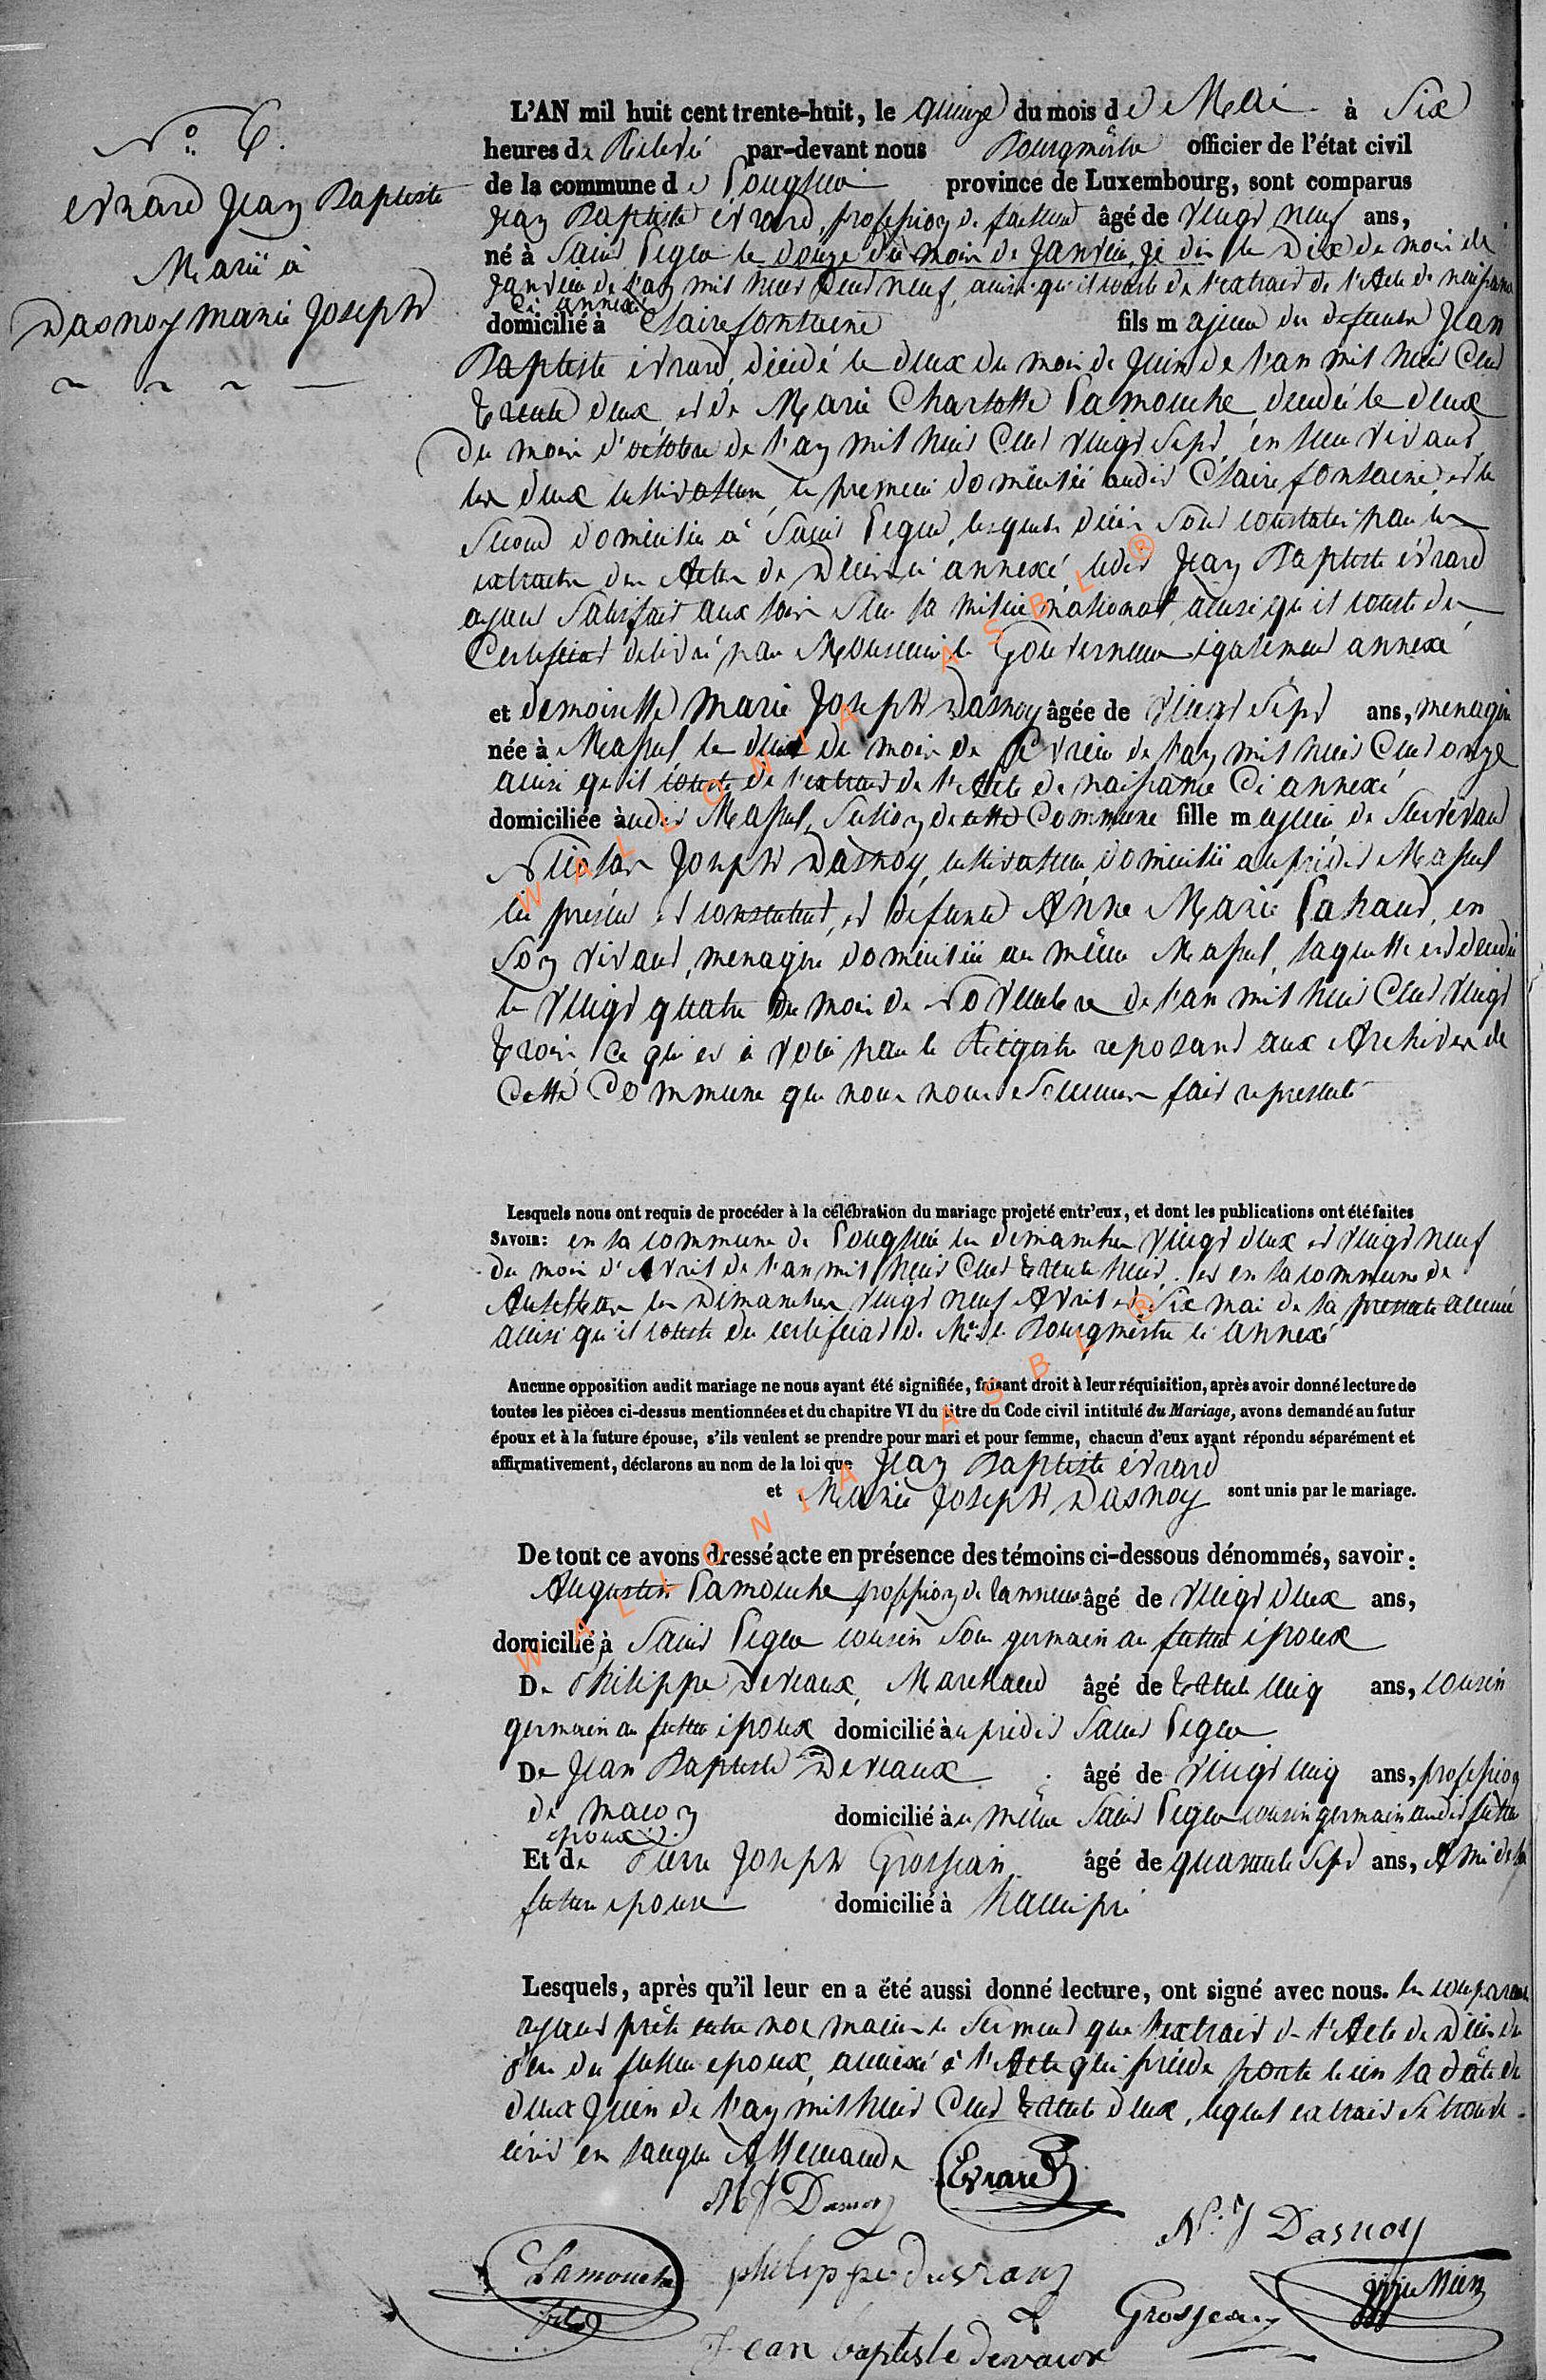 N.o 6.
évrard Jean Baptiste
Marié à
Dasnoy Marie Joseph
L'AN mil huit cent trente-huit, le quinze du mois de Mai à Six
heures de Relevé par-devant nous Bourgmêstre officier de l'état civil
de la commune de Longlier province de Luxembourg, sont comparus
Jean Baptiste évrard, profession de facteur âgé de vingt neuf ans,
né à Saint Leger le douze du mois de Janvier, je dis le Dix du mois de
Janvier de l'an mil huit Cent neuf, ainsi qu'il conste de l'extrait de l'Acte de naissance
Ci annexé
domicilié à Clairefontaine fils majeur des defunts Jean
Baptiste évrard, décédé le deux du mois de Juin de l'an mil huit Cent
trente deux, et de Marie Charlotte Lamouche décédée le deux
du mois d'octobre de l'an mil huit Cent vingt Sept, en leur vivant
les deux cultivateurs, le premier domicilié audit Clairefontaine, et la
Seconde domiciliée à Saint Leger, lesquels décès sont constatés par les
extraits des Actes de Décès ci annexé, ledit Jean Baptiste évrard
ayant Satisfait aux lois Sur la milice national, ainsi qu'il conste du
Certificat délivré par Monsieur le Gouverneur également annexé
et demoiselle Marie Joseph Dasnoy âgée de vingt Sept ans, menagère
née à Massul, le deux du mois de Fevrier de l'an mil huit Cent onze
ainsi qu'il conste de l'extrait de l'Acte de naissance Ci annexé
domiciliée audit Massul, Section de cette Commune fille majeure de Survivant
Nicolas Joseph Dasnoy, cultivateur, domicilié au prédit Massul
ici présent et consentant, et défunte Anne Marie Lahaut, en
Son vivant, menagère domiciliée au même Massul, laquelle est décédée
le vingt quatre du mois de Novembre de l'an mil huit Cent vingt
trois, ce qui est à voir par le Régistre reposant aux Archives de
Cette Commune que nous nous Sommes fait représenter
Lesquels nous ont requis de procéder à la célébration du mariage projeté entr'eux, et dont les publications ont été faites
SAVOIR: en la commune de Longlier les dimanches vingt deux et vingt neuf
du mois d'Avril de l'an mil huit Cent trente huit, et en la commune de
les Dimanches vingt neuf Avril et Six mai de la présente année
ainsi qu'il conste du certificat de Mr. le Bourgmêstre ci annexé
Aucune opposition audit mariage ne nous ayant été signifiée, faisant droit à leur réquisition, après avoir donné lecture de
toutes les pièces ci-dessus mentionnées et du chapitre VI du titre du Code civil intitulé du Mariage, avons demandé au futur
époux et à la future épouse, s'ils veulent se prendre pour mari et pour femme, chacun d'eux ayant répondu séparément et
affirmativement, déclarons au nom de la loi que Jean Baptiste évrard
et Marie Joseph Dasnoy sont unis par le mariage.
De tout ce avons dressé acte en présence des témoins ci-dessous dénommés, savoir:
Augustin Lamouche profession de tanneur âgé de vingt deux ans,
domicilié à Saint Leger cousin Sous germain au futur époux
De Philippe Devaux, Marchand âgé de trente cinq ans, cousin
germain au futur époux domicilié au prédit Saint Leger
De Jean Baptiste Devaux âgé de vingt cinq ans, profession
de maçon domicilié au même Saint Leger cousin germain audit futur
époux.
Et de Pierre Joseph Grosjean âgé de quarante Sept ans, Ami de la
future épouse domicilié à Hamipré
Lesquels, après qu'il leur en a été aussi donné lecture, ont signé avec nous. les comparants
ayant prêté entre nos mains le Serment que l'extrait de l'Acte de Décès du
Père du futur époux, annexé à l'Acte qui précède porte bien la date du
deux Juin de l'an mil huit Cent trente deux, lequel extrait se trouve
écrit en langue Allemande
Evrard
MJ Dasnoy
N: J Dasnoy
Lamouche
fils
philippe devaux
Grosjean
Jean baptiste devaux
WALLONIA ASBL ®
WALLONIA ASBL ®